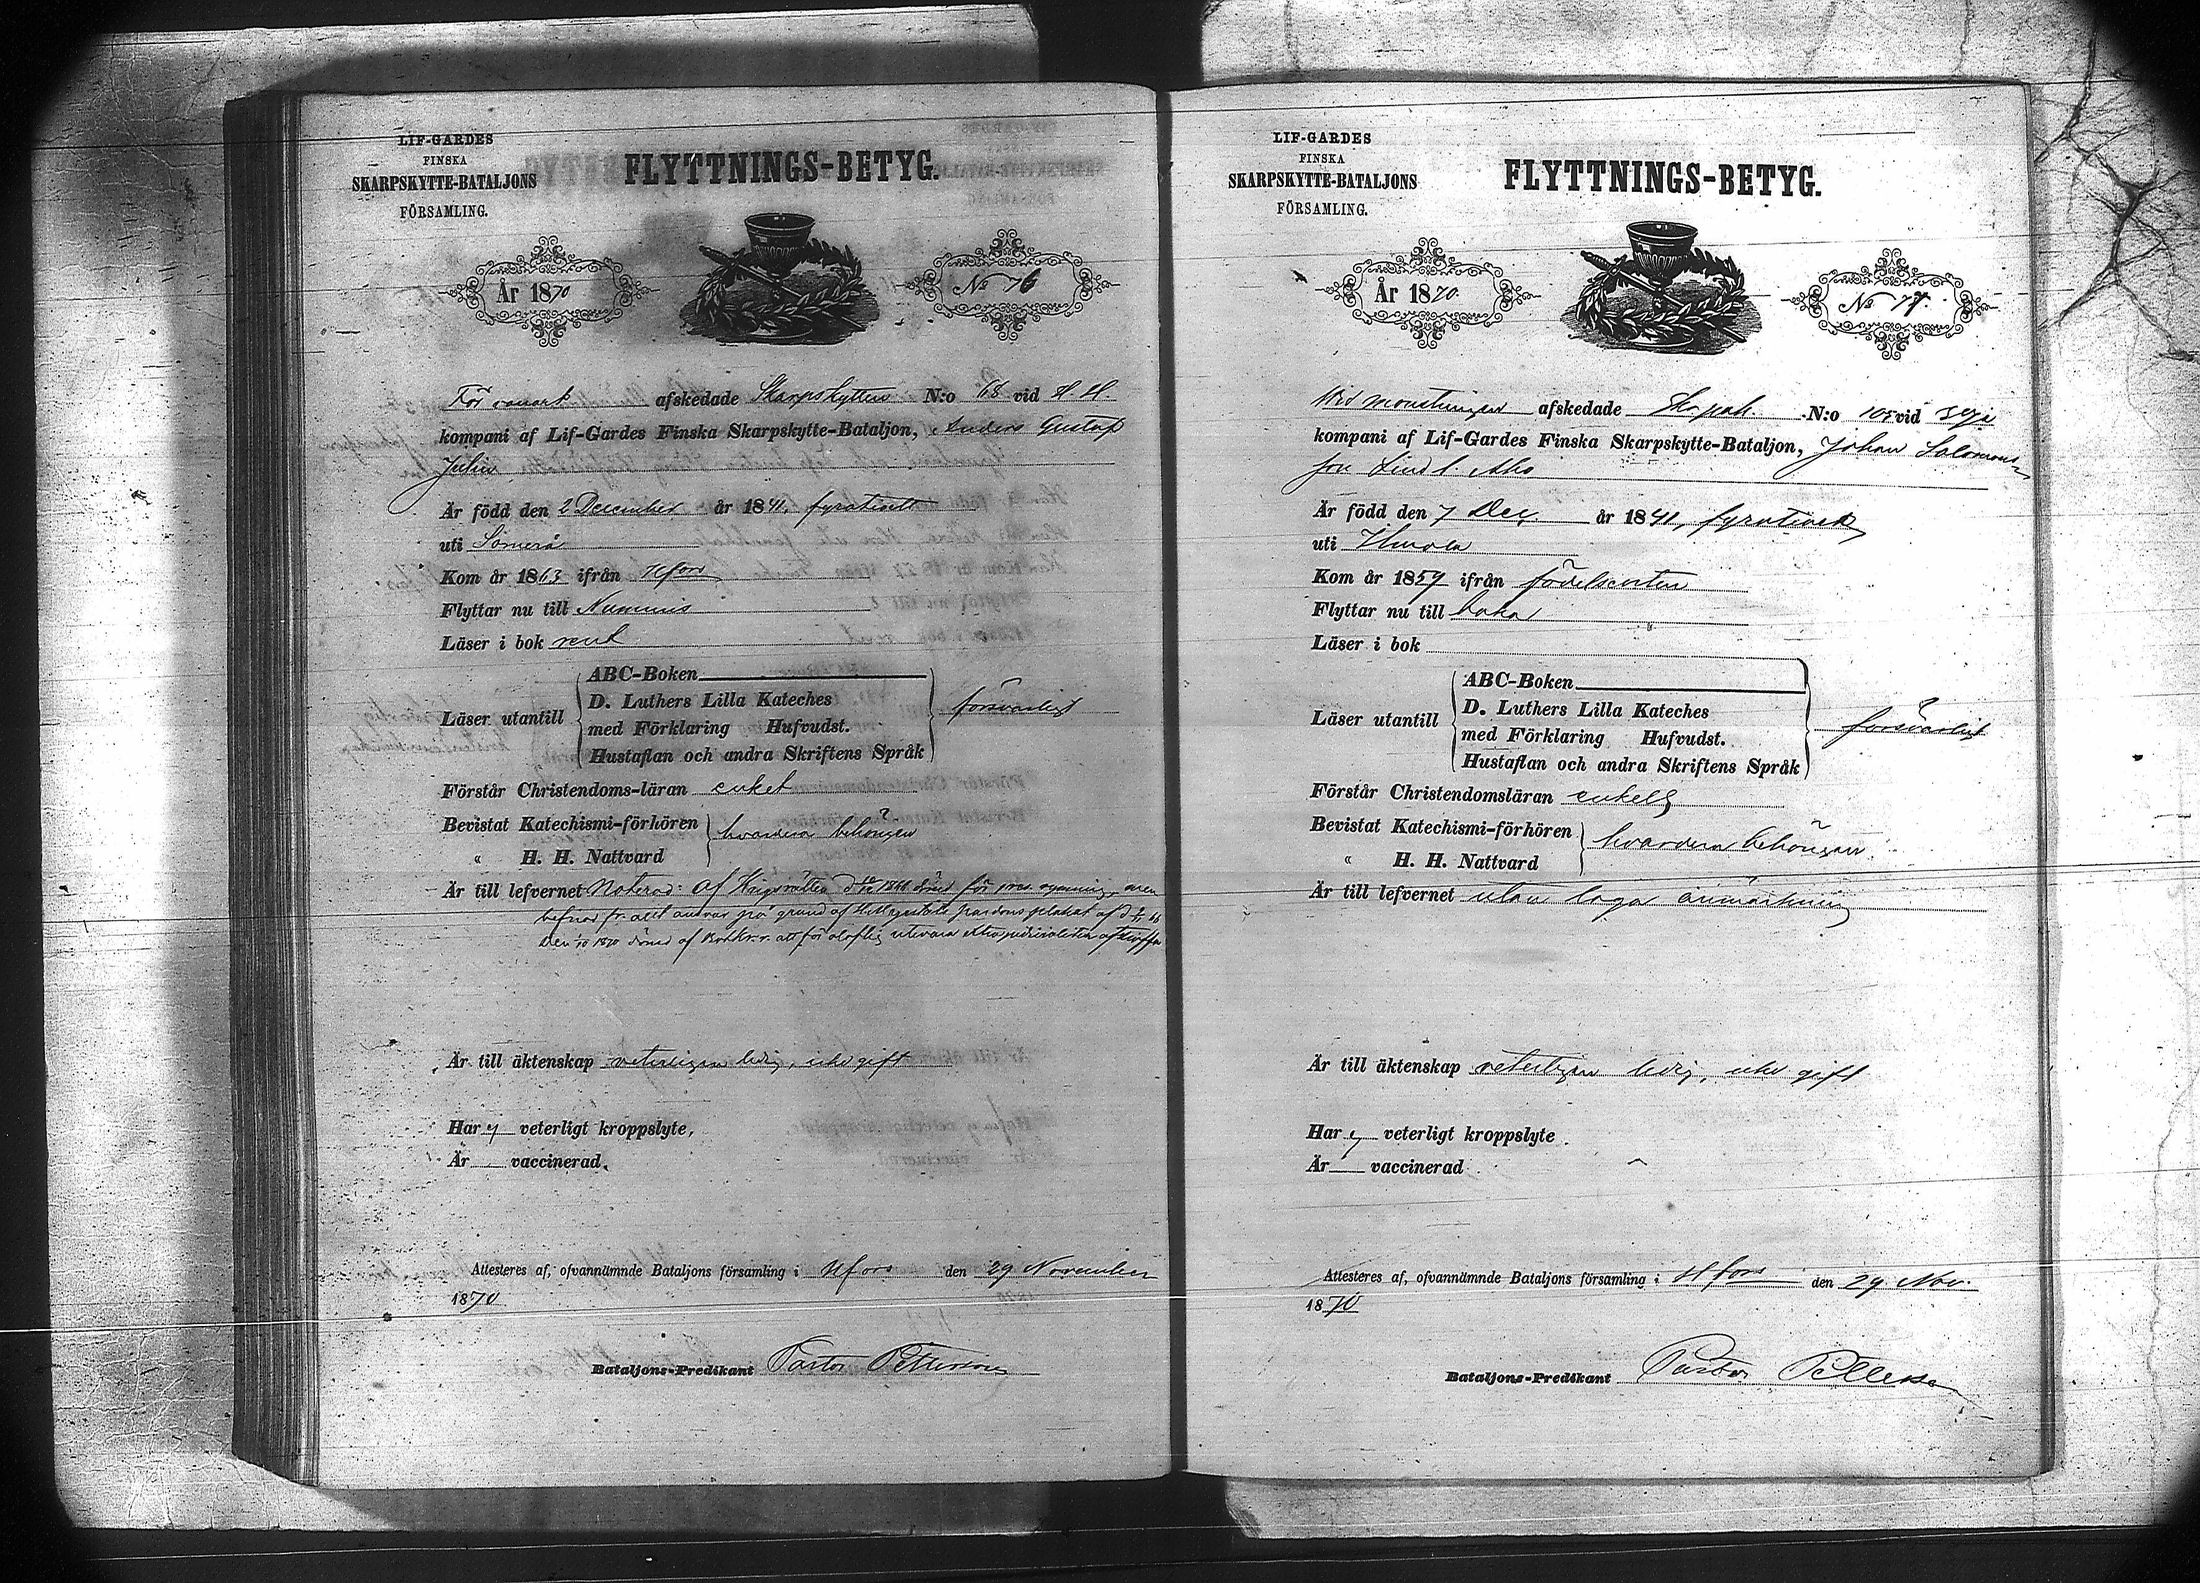 LIF-GARDES
FINSKA
SKARPSKYTTE-BATALJONS
FÖRSAMLING.
FLYTTNINGS-BETYG.
År 1870
No 76
afskedade Skarpskytten N:o 68 vid H. H.
kompani af Lif-Gardes Finska Skarpskytte-Bataljon, Anders Gustaf
Julin
Är född den 2 December år 1841, fyrationett
uti Somero
Kom år 1863 ifrån Hfors
Flyttar nu till Nummis
Läser i bok rent
ABC-Boken
D. Luthers Lilla Kateches
Läser utantill
med Förklaring Hufvudst.
försvarligt
Hustaflan och andra Skriftens Språk
Förstår Christendoms-läran enkelt
Bevistat Katechismi-förhören
hvardera behörigen
" H. H. Nattvard
Är till lefvernet Noterad: af Krigsrätten 1866 dömd för
befriad fr. allt ansvar på grund af
den 1870 dömd af att för olaflig utevaro
Är till äktenskap veterligen ledig, utom gift
Har y veterligt kroppslyte,
Är vaccinerad.
Attesteres af, ofvannämnde Bataljons församling i Hfors den 29 November
1870
Bataljons-Predikant Pastor Petterson
LIF-GARDES
FINSKA
SKARPSKYTTE-BATALJONS
FÖRSAMLING.
FLYTTNINGS-BETYG.
År 1870.
No 77.
Vid mönstringen afskedade N:o 105 vid 3dje
kompani af Lif-Gardes Finska Skarpskytte-Bataljon, Johan Salomons-
son Lind l. Aho
Är född den 7 Dec. år 1841, fyrationett
uti Ilmola
Kom år 1859 ifrån födelseorten
Flyttar nu till
Läser i bok
ABC-Boken
D. Luthers Lilla Kateches
Läser utantill
med Förklaring Hufvudst.
försvarligt
Hustaflan och andra Skriftens Språk
Förstår Christendomsläran enkelt
Bevistat Katechismi-förhören
hvardera behörigen
" H. H. Nattvard
Är till lefvernet utan laga anmärkning
Är till äktenskap veterligen ledig, utom gift
Har y veterligt kroppslyte.
Är vaccinerad
Attesteres af, ofvannämnde Bataljons församling i Hfors den 29 Nov.
1870
Bataljons-Predikant Pastor Petterson